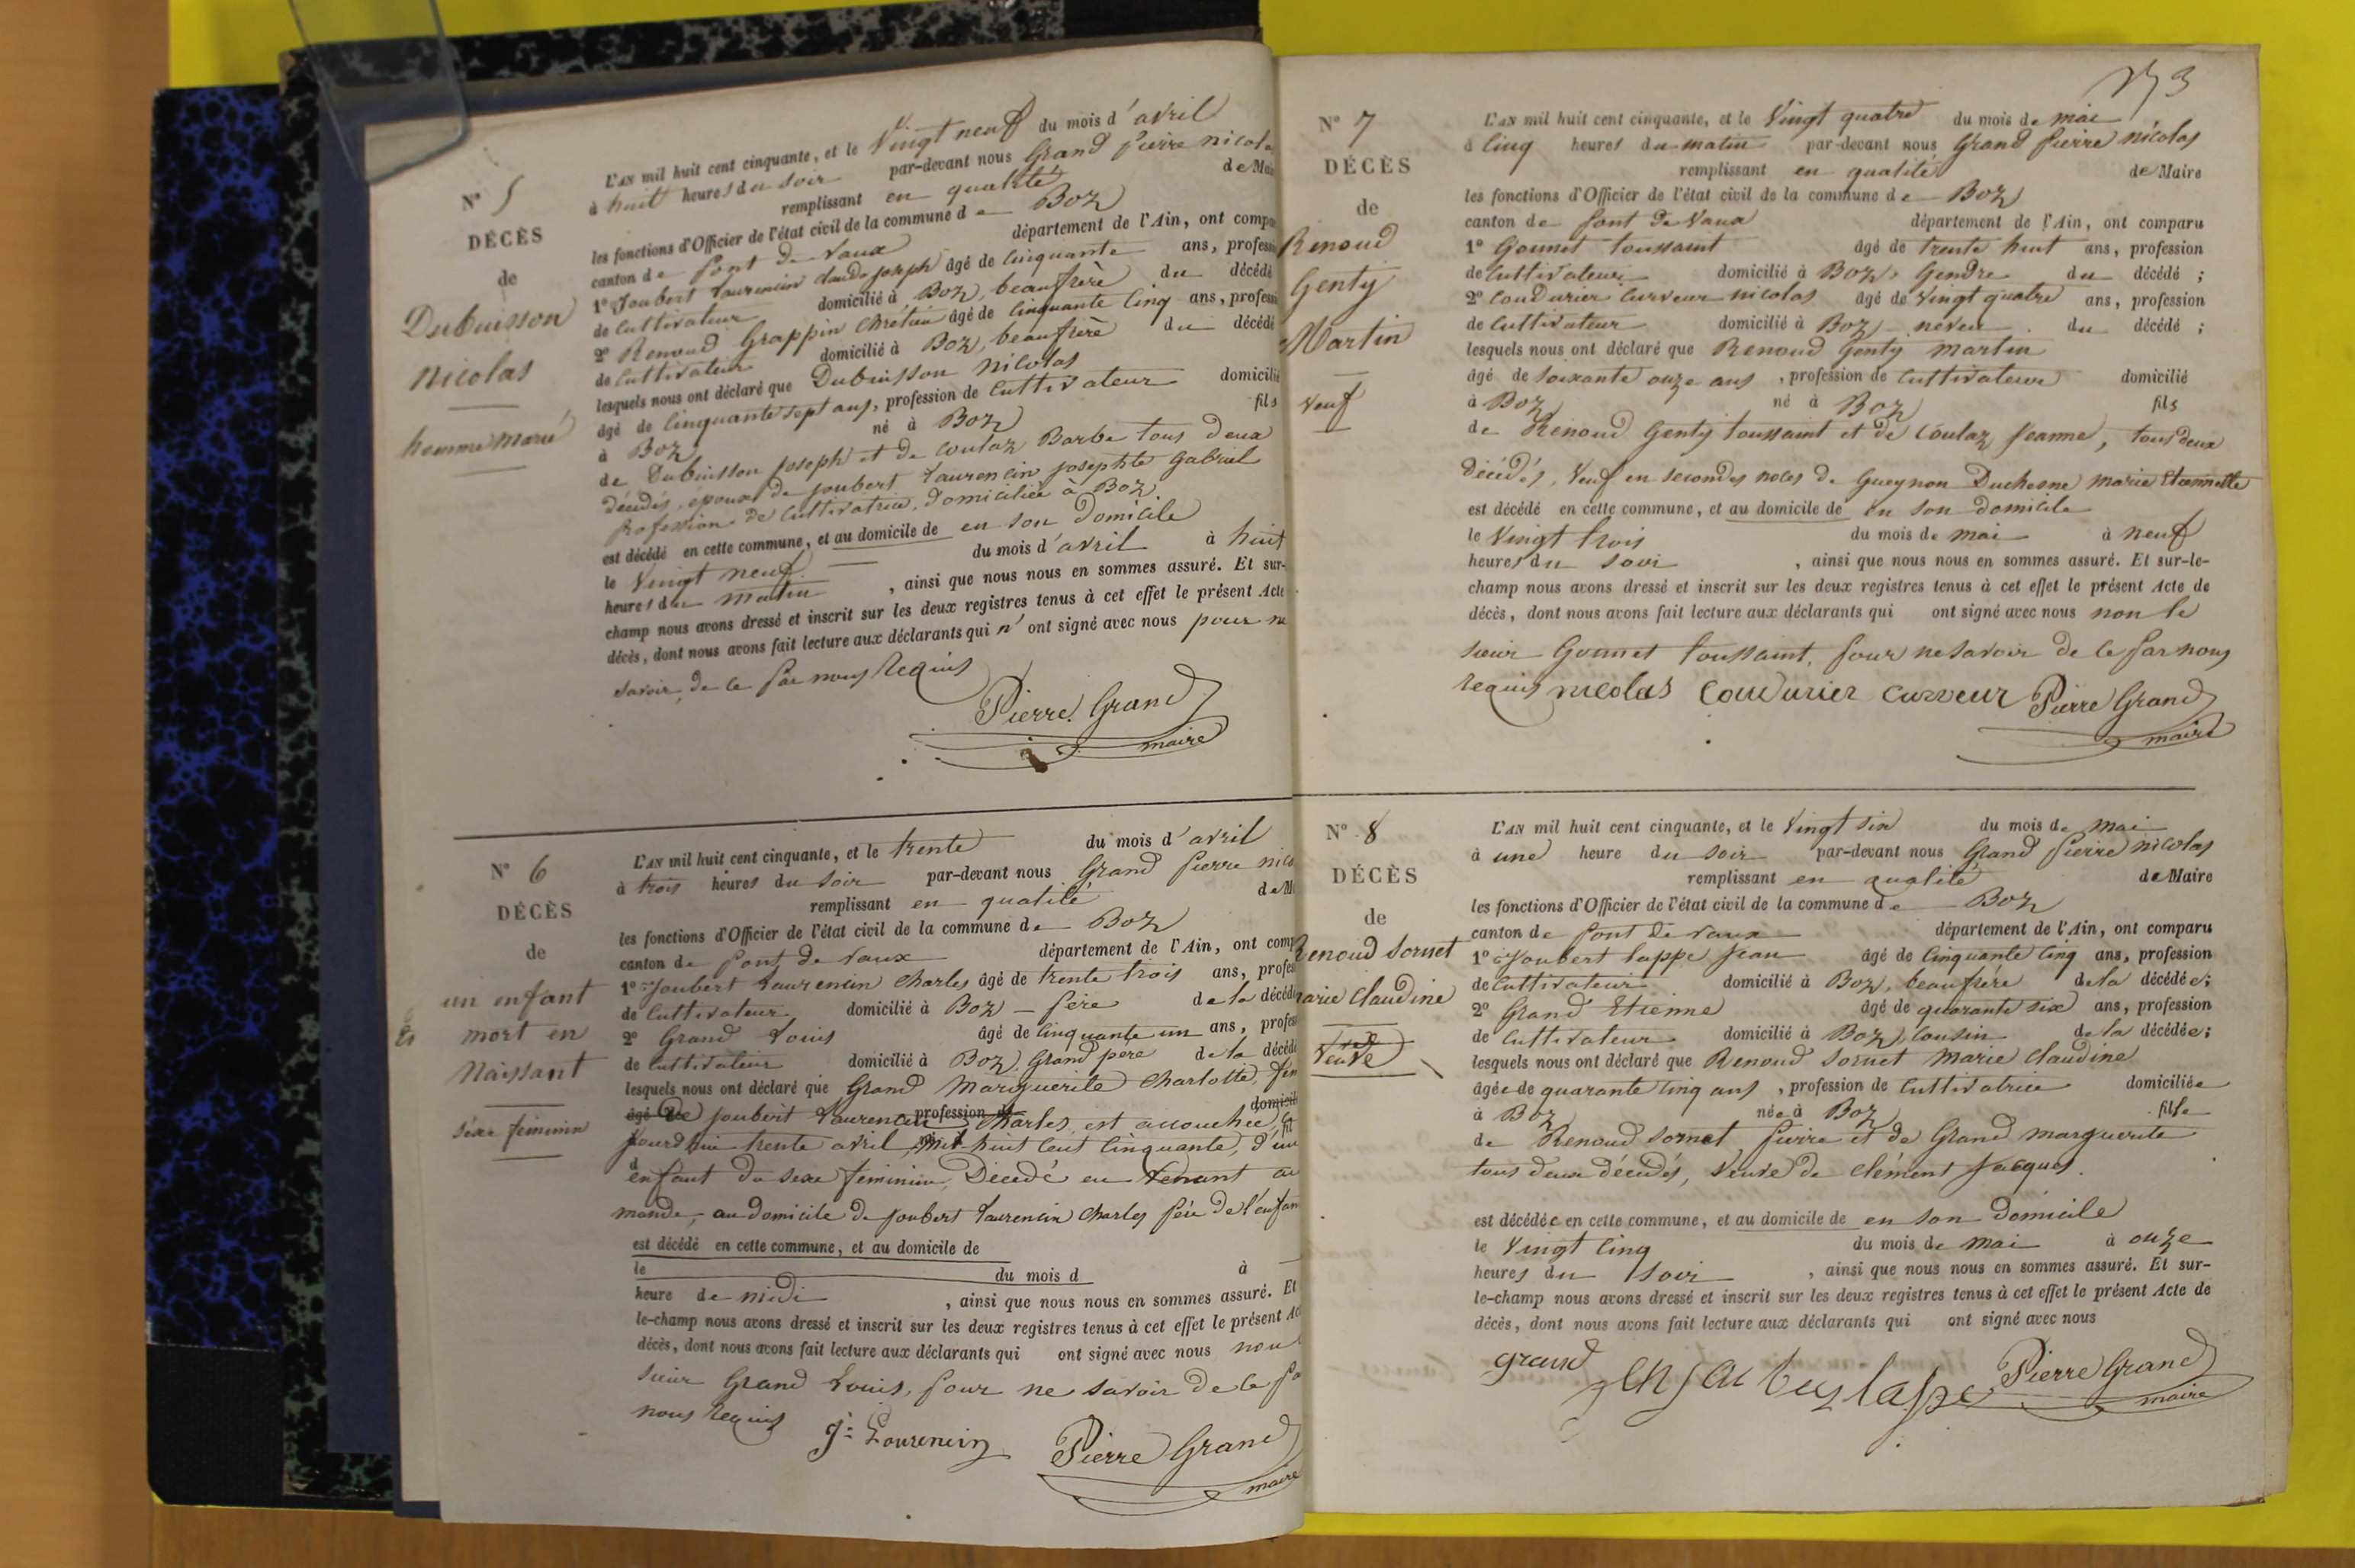 N° 5
DÉCÈS
de
Dubuisson
Nicolas
homme marié
L'AN mil huit cent cinquante, et le Vingt neuf du mois d'avril
à huit heures du soir par-devant nous Grand Pierre nicolas
remplissant en qualité de Mai
les fonctions d'Officier de l'état civil de la commune de Boz
canton de Pont de Vaux département de l'Ain, ont compa
1° Joubert Laurencin Claude Joseph âgé de cinquante ans, profess
de cultivateur domicilié à Boz, beaufrère du décédé
2° Renoud Grappin Chrétien âgé de cinquante cinq ans, profess
de cultivateur domicilié à Boz, beaufrère du décédé
lesquels nous ont déclaré que Dubuisson Nicolas
âgé de cinquante sept ans, profession de cultivateur domicilié
à Boz né à Boz fils
de Dubuisson Joseph et de Coulaz Barbe tous deux
décédés, epoux de Joubert Laurencin Josephte Gabriel
profession de cultivatrice, domiciliée à Boz
est décédé en cette commune, et au domicile de en son domicile
le Vingt neuf du mois d'avril à huit
heures du matin , ainsi que nous nous en sommes assuré. Et sur-
champ nous avons dressé et inscrit sur les deux registres tenus à cet effet le présent Acte
décès, dont nous avons fait lecture aux déclarants qui n'ont signé avec nous pour ne
savoir, de ce par nous requis
Pierre Grand
maire
N° 6
DÉCÈS
de
un enfant
mort en
Naissant
sexe feminin
L'AN mil huit cent cinquante, et le trente du mois d'avril
à trois heures du soir par-devant nous Grand Pierre nico
remplissant en qualité de M
les fonctions d'Officier de l'état civil de la commune de Boz
canton de Pont de Vaux département de l'Ain, ont comp
1° Joubert Laurencin Charles âgé de trente trois ans, profes
de cultivateur domicilié à Boz – père de la décédé
2° Grand Louis âgé de cinquante un ans, profes
de cultivateur domicilié à Boz, Grand père de la décédé
lesquels nous ont déclaré que Grand Marguerite Charlotte, fem
âgé de Joubert Laurencin profession de Charles, est accouchée, domicil
jourd'hui trente avril mil huit cent cinquante, d'un
enfant du sexe feminin, Décédé en venant au
monde, au domicile de Joubert Laurencin Charles père de l'enfan
est décédé en cette commune, et au domicile de
le du mois d à
heure de midi , ainsi que nous nous en sommes assuré. Et
le-champ nous avons dressé et inscrit sur les deux registres tenus à cet effet le présent Ac
décès, dont nous avons fait lecture aux déclarants qui ont signé avec nous non
sieur Grand Louis, pour ne savoir de ce pa
nous requis
Pierre Grand
maire
N° 7
DÉCÈS
de
Renoud
Genty
Martin
Veuf
L'AN mil huit cent cinquante, et le Vingt quatre du mois de mai
à cinq heures du matin par-devant nous Grand Pierre nicolas
remplissant en qualité de Maire
les fonctions d'Officier de l'état civil de la commune de Boz
canton de Pont de Vaux département de l'Ain, ont comparu
1° Gonnet Toussaint âgé de trente huit ans, profession
de cultivateur domicilié à Boz, Gendre du décédé ;
2° Coudurier Curveur nicolas âgé de vingt quatre ans, profession
de cultivateur domicilié à Boz – neveu du décédé ;
lesquels nous ont déclaré que Renoud Genty Martin
âgé de soixante onze ans , profession de cultivateur domicilié
à Boz né à Boz fils
de Renoud Genty Toussaint et de Coulaz Jeanne, tous deux
décédés, Veuf en secondes noces de Gueynon Duchesne marie Etiennette
est décédé en cette commune, et au domicile de en son domicile
le Vingt trois du mois de mai à neuf
heures du soir , ainsi que nous nous en sommes assuré. Et sur-le-
champ nous avons dressé et inscrit sur les deux registres tenus à cet effet le présent Acte de
décès, dont nous avons fait lecture aux déclarants qui ont signé avec nous non le
sieur Gonnet Toussaint, pour ne savoir de ce par nous
requis nicolas Coudurier curveur Pierre Grand
maire
N° 8
DÉCÈS
de
Renoud Sornet
marie Claudine
Veuve
L'AN mil huit cent cinquante, et le Vingt six du mois de mai
à une heure du soir par-devant nous Grand Pierre nicolas
remplissant en qualité de Maire
les fonctions d'Officier de l'état civil de la commune de Boz
canton de Pont de Vaux département de l'Ain, ont comparu
1° Joubert Lappe Jean âgé de cinquante cinq ans, profession
de cultivateur domicilié à Boz, beaufrére de la décédée;
2° Grand Etienne âgé de quarante six ans, profession
de cultivateur domicilié à Boz, cousin de la décédée;
lesquels nous ont déclaré que Renoud Sornet Marie Claudine
âgée de quarante cinq ans , profession de cultivatrice domiciliée
à Boz née à Boz fille
de Renoud Sornet Pierre et de Grand marguerite
tous deux décédés, Veuve de Clément Jacques.
est décédée en cette commune, et au domicile de en son domicile
le Vingt cinq du mois de mai à onze
heures du soir , ainsi que nous nous en sommes assuré. Et sur-
le-champ nous avons dressé et inscrit sur les deux registres tenus à cet effet le présent Acte de
décès, dont nous avons fait lecture aux déclarants qui ont signé avec nous
grand Pierre Grand
maire